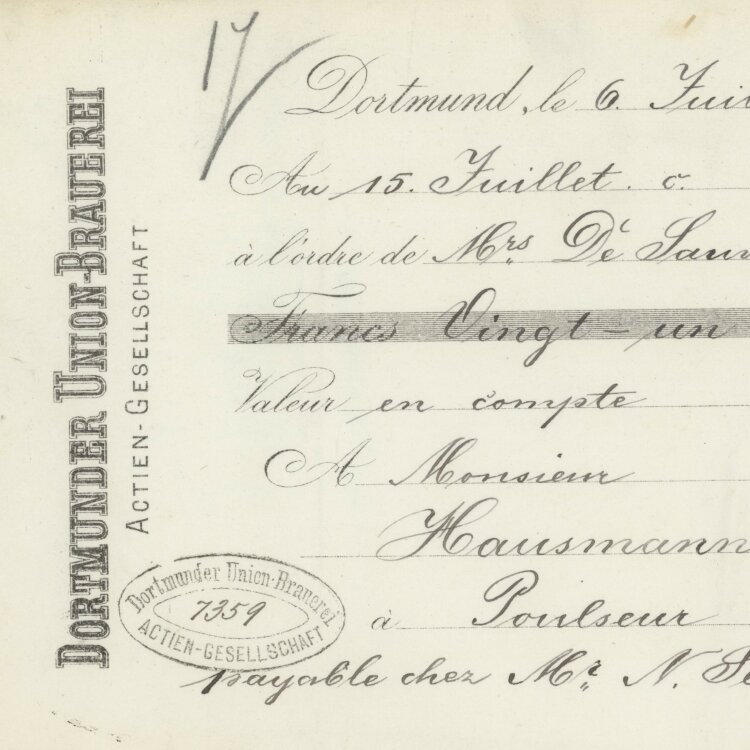 17
DORTMUNDER UNION-BRAUEREI
ACTIEN-GESELLSCHAFT
Dortmund, le 6. Juil
Au 15. Juillet. c.
à l'ordre de Mrs De
Francs Vingt-un
Valeur en compte
A Monsieur
Hausmann
à Poulseur
payable chez Mr. N.
Dortmunder Union-Brauerei
7359
ACTIEN-GESELLSCHAFT